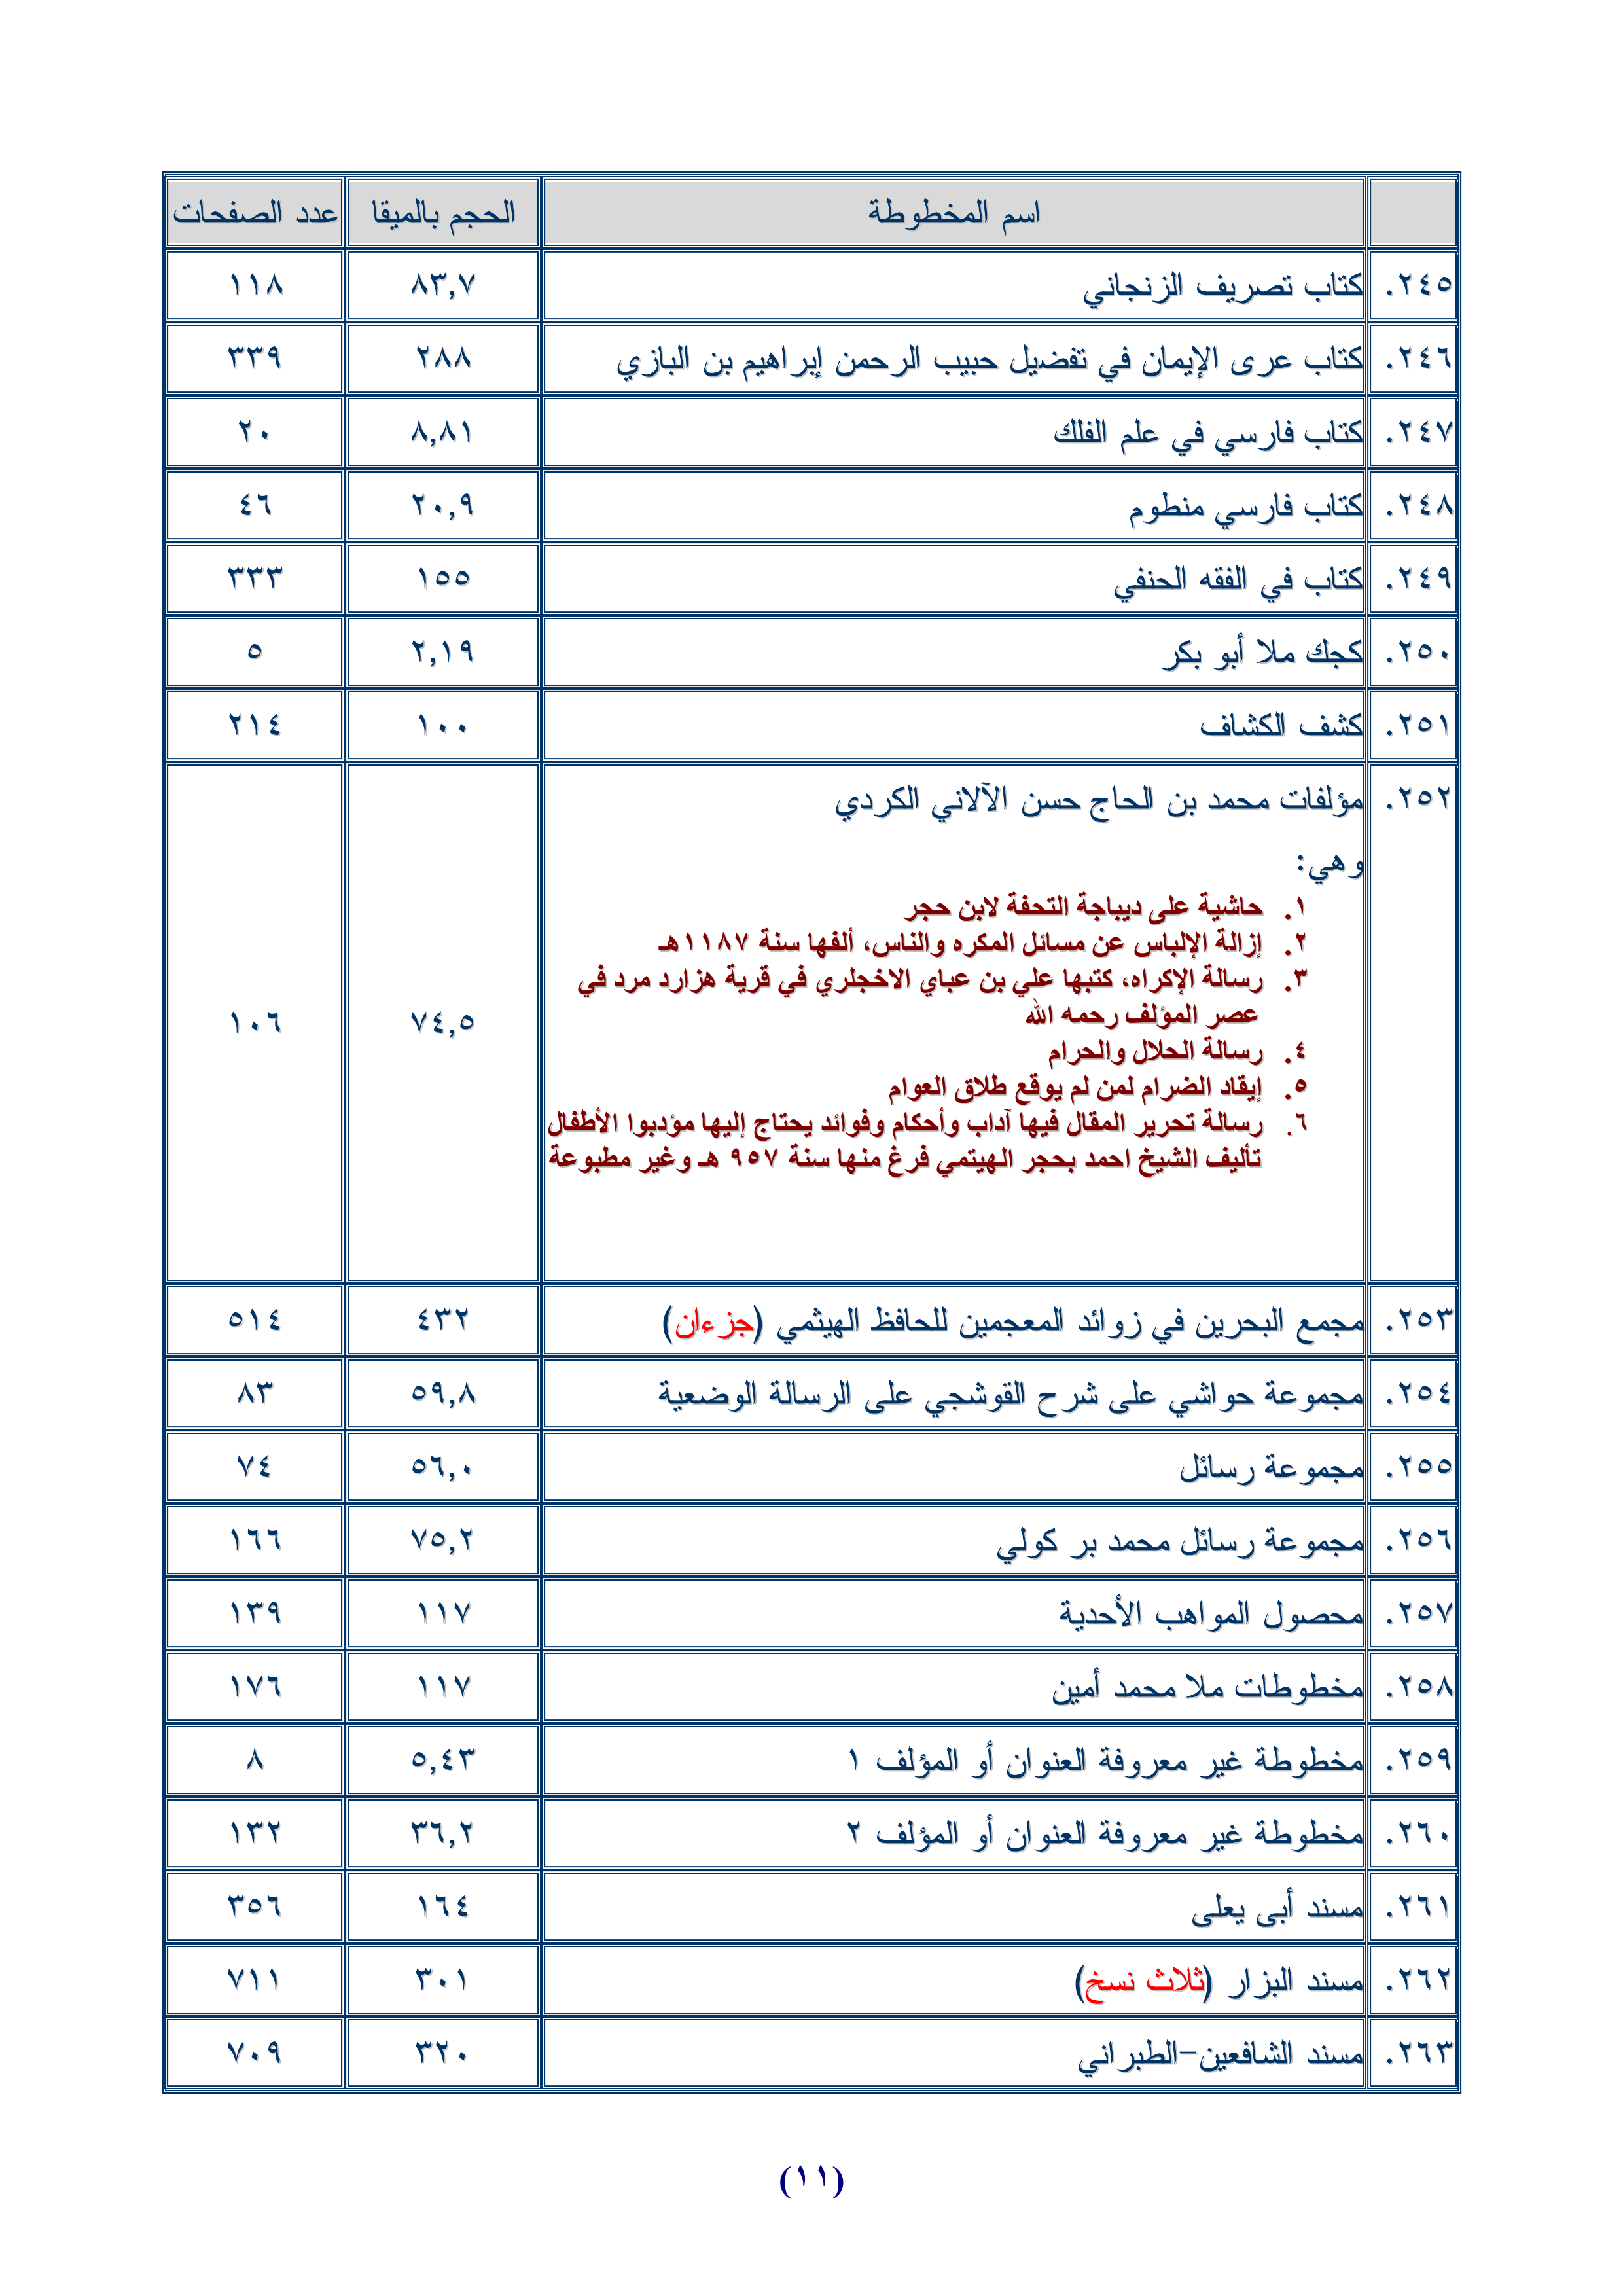 اسم المخطوطة الحجم بالميقا عدد الصفحات
٢٤٥. كتاب تصريف الزنجاني ٨٣,٧ ١١٨
٢٤٦. كتاب عرى الإيمان في تفضيل حبيب الرحمن إبراهيم بن البازي ٢٨٨ ٣٣٩
٢٤٧. كتاب فارسي في علم الفلك ٨,٨١ ٢٠
٢٤٨. كتاب فارسي منطوم ٢٠,٩ ٤٦
٢٤٩. كتاب في الفقه الحنفي ١٥٥ ٣٣٣
٢٥٠. كجك ملا أبو بكر ٢,١٩ ٥
٢٥١. كشف الكشاف ١٠٠ ٢١٤
٢٥٢. مؤلفات محمد بن الحاج حسن الآلاني الكردي
وهي:
١. حاشية على ديباجة التحفة لابن حجر
٢. إزالة الإلباس عن مسائل المكره والناس، ألفها سنة ١١٨٧هـ
٣. رسالة الإكراه، كتبها علي بن عباي الاخجلري في قرية هزارد مرد في
عصر المؤلف رحمه الله
٤. رسالة الحلال والحرام
٥. إيقاد الضرام لمن لم يوقع طلاق العوام
٦. رسالة تحرير المقال فيها آداب وأحكام وفوائد يحتاج إليها مؤدبوا الأطفال
تأليف الشيخ احمد بحجر الهيتمي فرغ منها سنة ٩٥٧ هـ وغير مطبوعة
٧٤,٥ ١٠٦
٢٥٣. مجمع البحرين في زوائد المعجمين للحافظ الهيثمي (جزءان) ٤٣٢ ٥١٤
٢٥٤. مجموعة حواشي على شرح القوشجي على الرسالة الوضعية ٥٩,٨ ٨٣
٢٥٥. مجموعة رسائل ٥٦,٠ ٧٤
٢٥٦. مجموعة رسائل محمد بر كولي ٧٥,٢ ١٦٦
٢٥٧. محصول المواهب الأحدية ١١٧ ١٣٩
٢٥٨. مخطوطات ملا محمد أمين ١١٧ ١٧٦
٢٥٩. مخطوطة غير معروفة العنوان أو المؤلف ١ ٥,٤٣ ٨
٢٦٠. مخطوطة غير معروفة العنوان أو المؤلف ٢ ٣٦,٢ ١٣٢
٢٦١. مسند أبى يعلى ١٦٤ ٣٥٦
٢٦٢. مسند البزار (ثلاث نسخ) ٣٠١ ٧١١
٢٦٣. مسند الشافعين-الطبراني ٣٢٠ ٧٠٩
(١١)